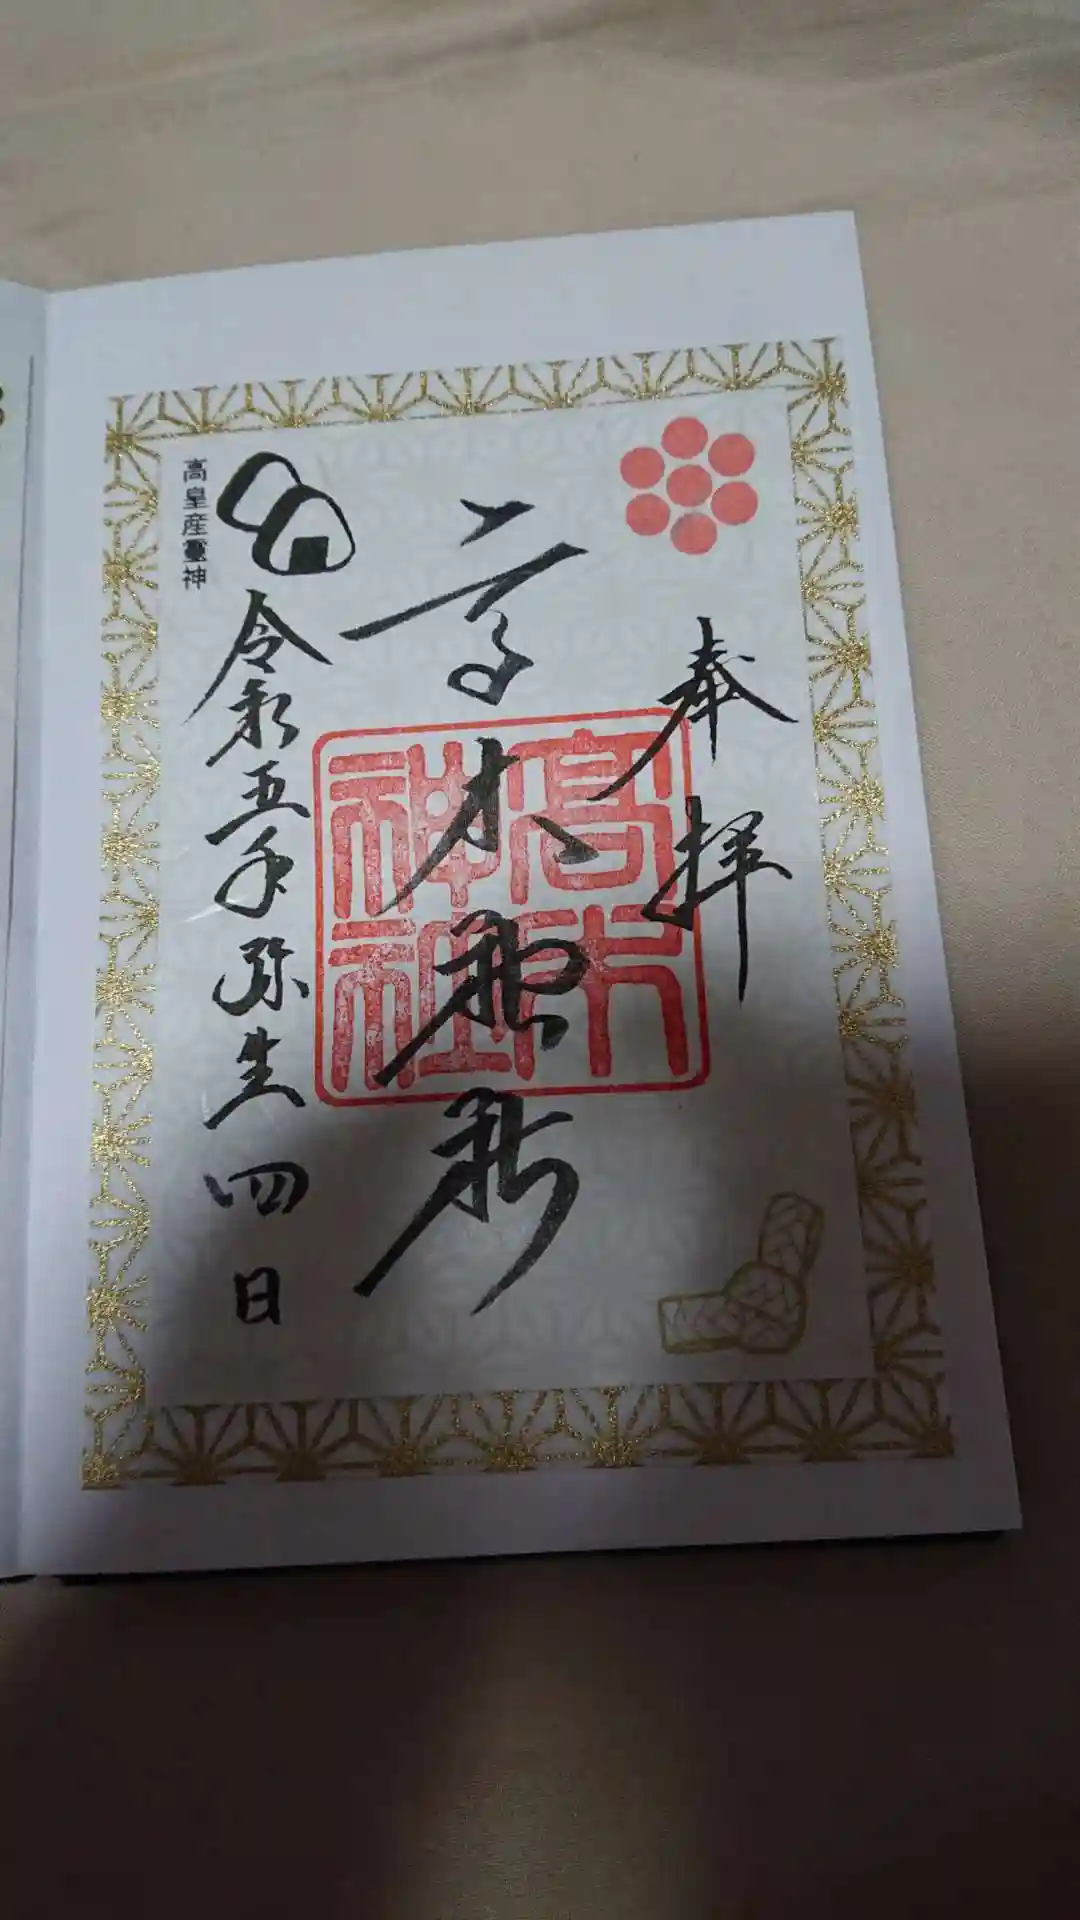 奉拝
高木神社
高木神社
令和五年弥生四日
高皇産霊神